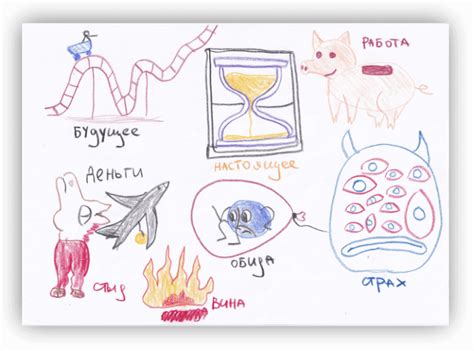 РАБОТА
БУДУЩЕЕ
НАСТОЯЩЕЕ
ДЕНЬГИ
ОБИДА
СТРАХ
СТЫД
ВИНА